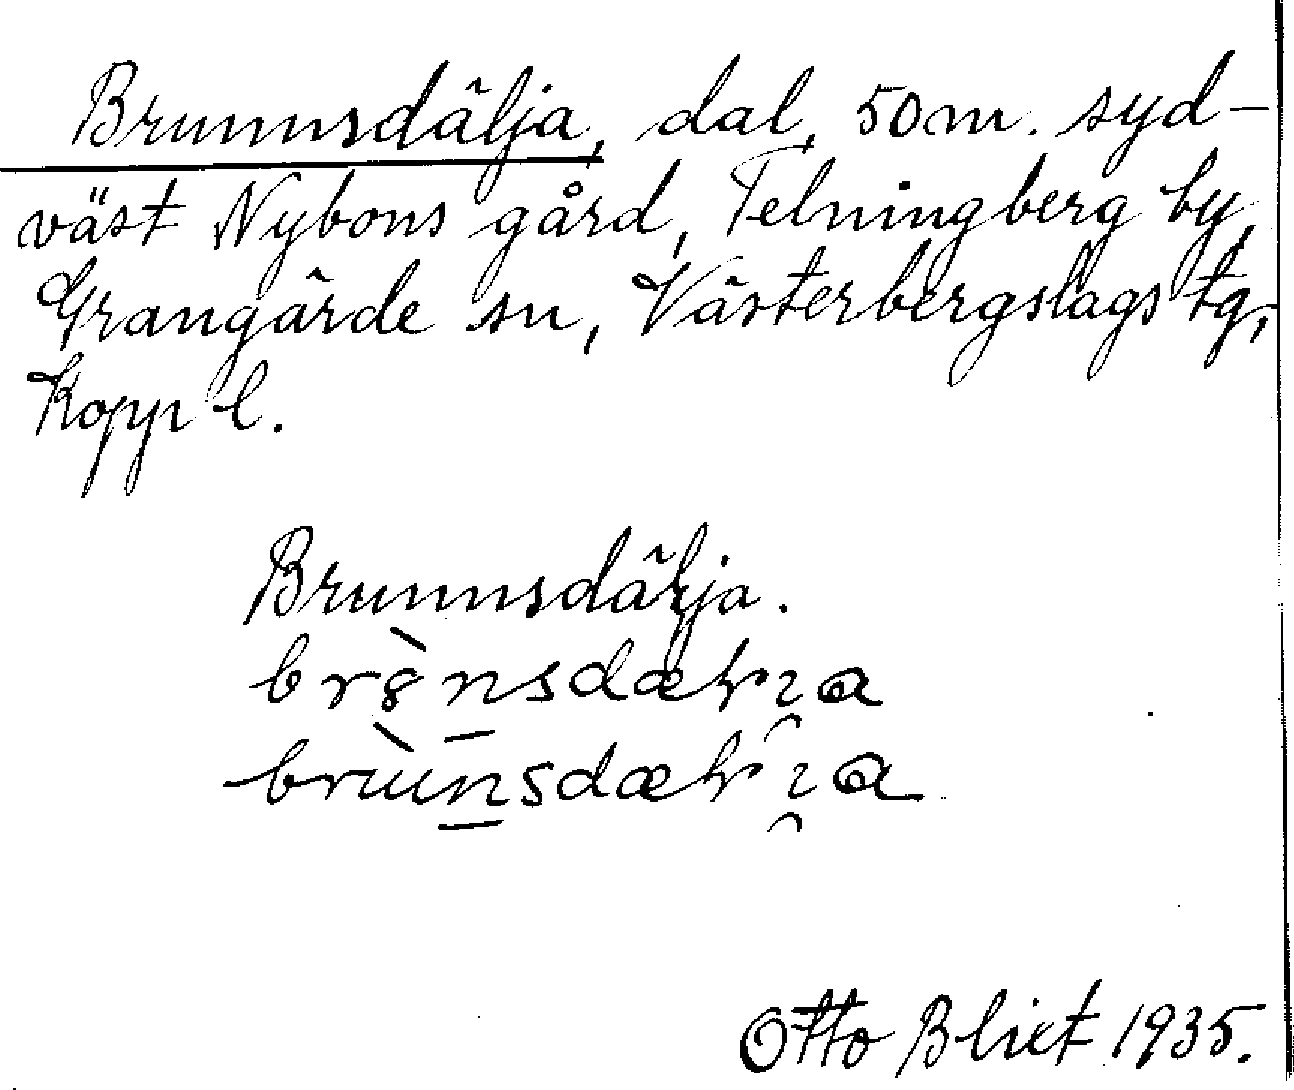 Brunnsdälja, dal, 50 m. syd-
väst Nybons gård, Telningberg by,
Grangärde sn, Västerbergslags tg,
Kopp l.
Brunnsdälja.
Otto Blixt 1935.